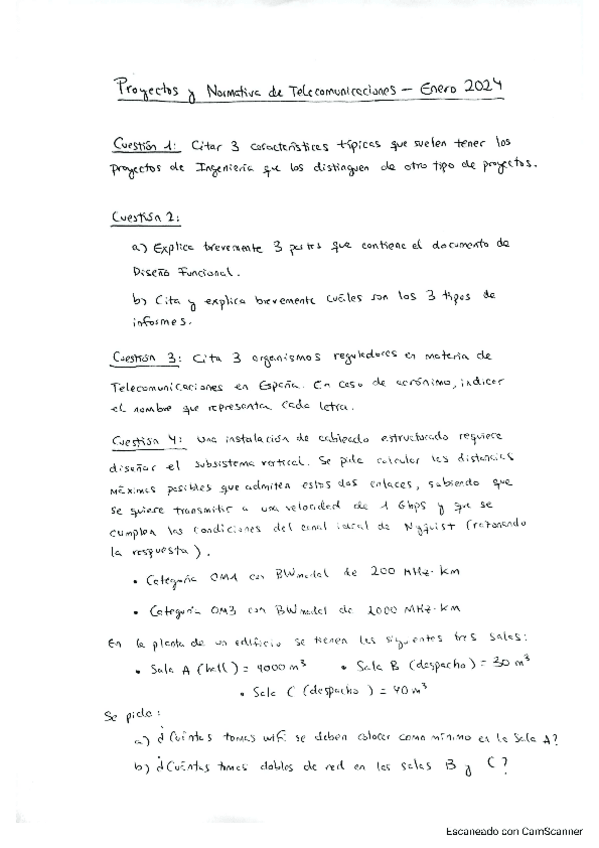 Proyectos y Normativa de Telecomunicaciones – Enero 2024
Cuestión 1: Citar 3 características típicas que suelen tener los
proyectos de Ingeniería que los distinguen de otro tipo de proyectos.
Cuestión 2:
a) Explica brevemente 3 partes que contiene el documento de
Diseño Funcional.
b) Cita y explica brevemente cuáles son los 3 tipos de
informes.
Cuestión 3: Cita 3 organismos reguladores en materia de
Telecomunicaciones en España. En caso de acrónimo, indicar
el nombre que representa cada letra.
Cuestión 4: Una instalación de cableado estructurado requiere
diseñar el subsistema vertical. Se pide calcular las distancias
máximas posibles que admiten estos dos enlaces, sabiendo que
se quiere transmitir a una velocidad de 1 Gbps y que se
cumplen las condiciones del canal ideal de Nyquist (razonando
la respuesta).
• Categoría OM1 con BWmodal de 200 MHz·km
• Categoría OM3 con BWmodal de 2000 MHz·km
En la planta de un edificio se tienen las siguientes tres salas:
• Sala A (hall) = 4000 m³ • Sala B (despacho) = 30 m³
• Sala C (despacho) = 40 m³
Se pide:
a) ¿Cuántas tomas wifi se deben colocar como mínimo en la Sala A?
b) ¿Cuántas tomas dobles de red en las salas B y C?
Escaneado con CamScanner